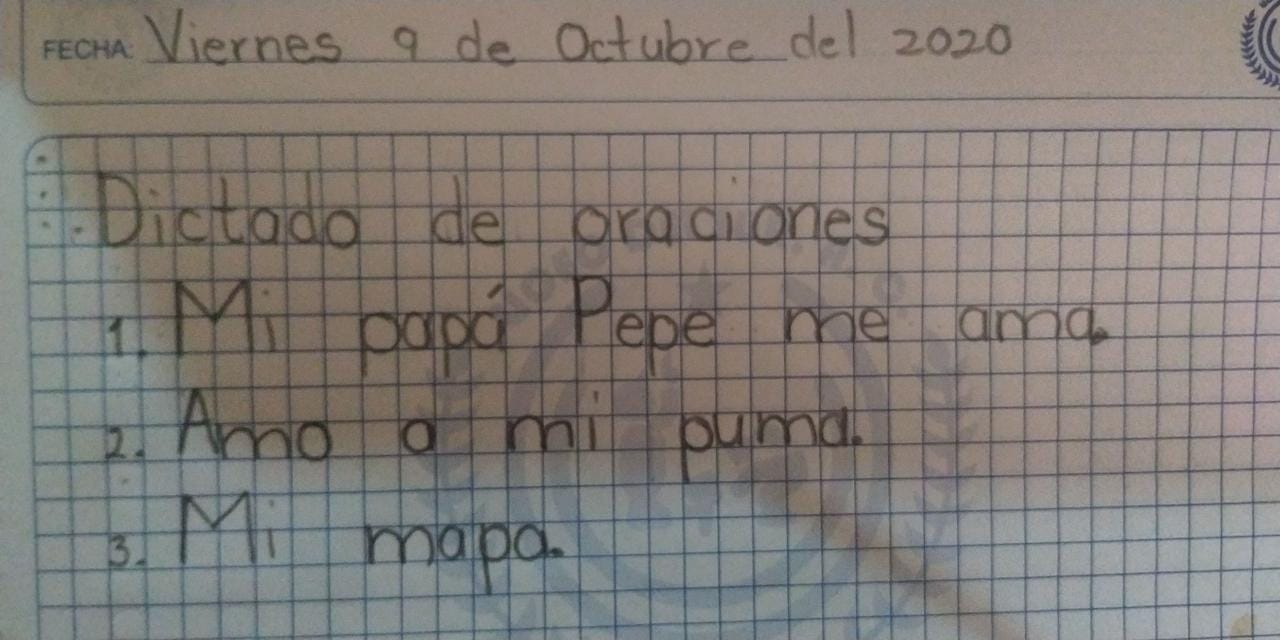 FECHA: Viernes 9 de Octubre del 2020
Dictado de oraciones
1. Mi papá Pepe me ama.
2. Amo a mi puma.
3. Mi mapa.